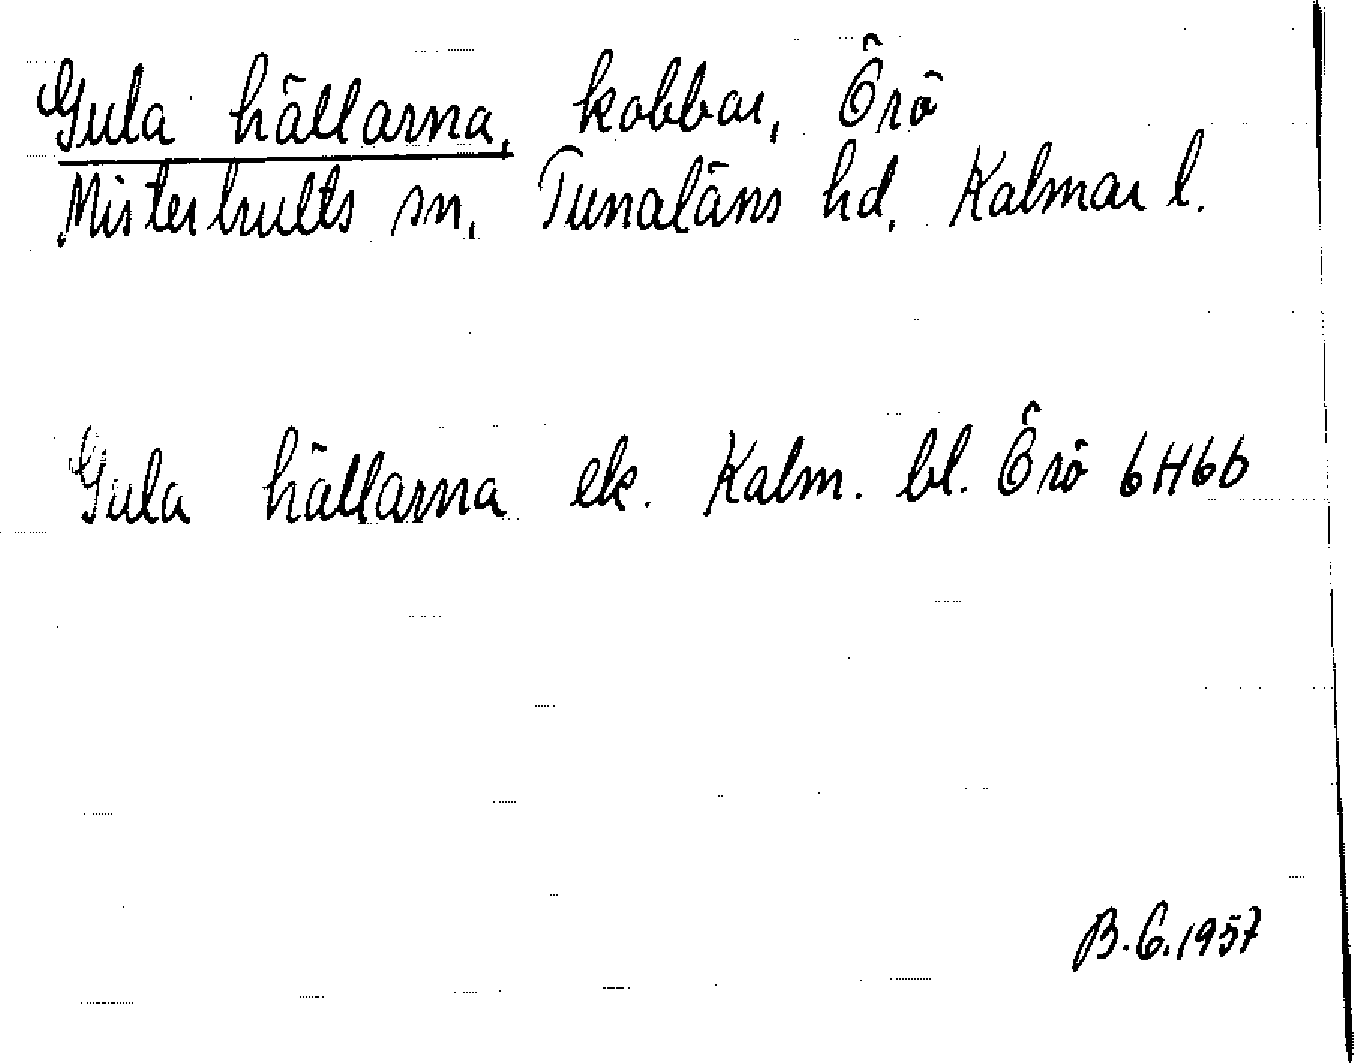 Gula hällarna, kobbar, Örö
Misterhults sn, Tunaläns hd, Kalmar l.
Gula hällarna ek. Kalm. bl. Örö 6H6b
B.G.1957